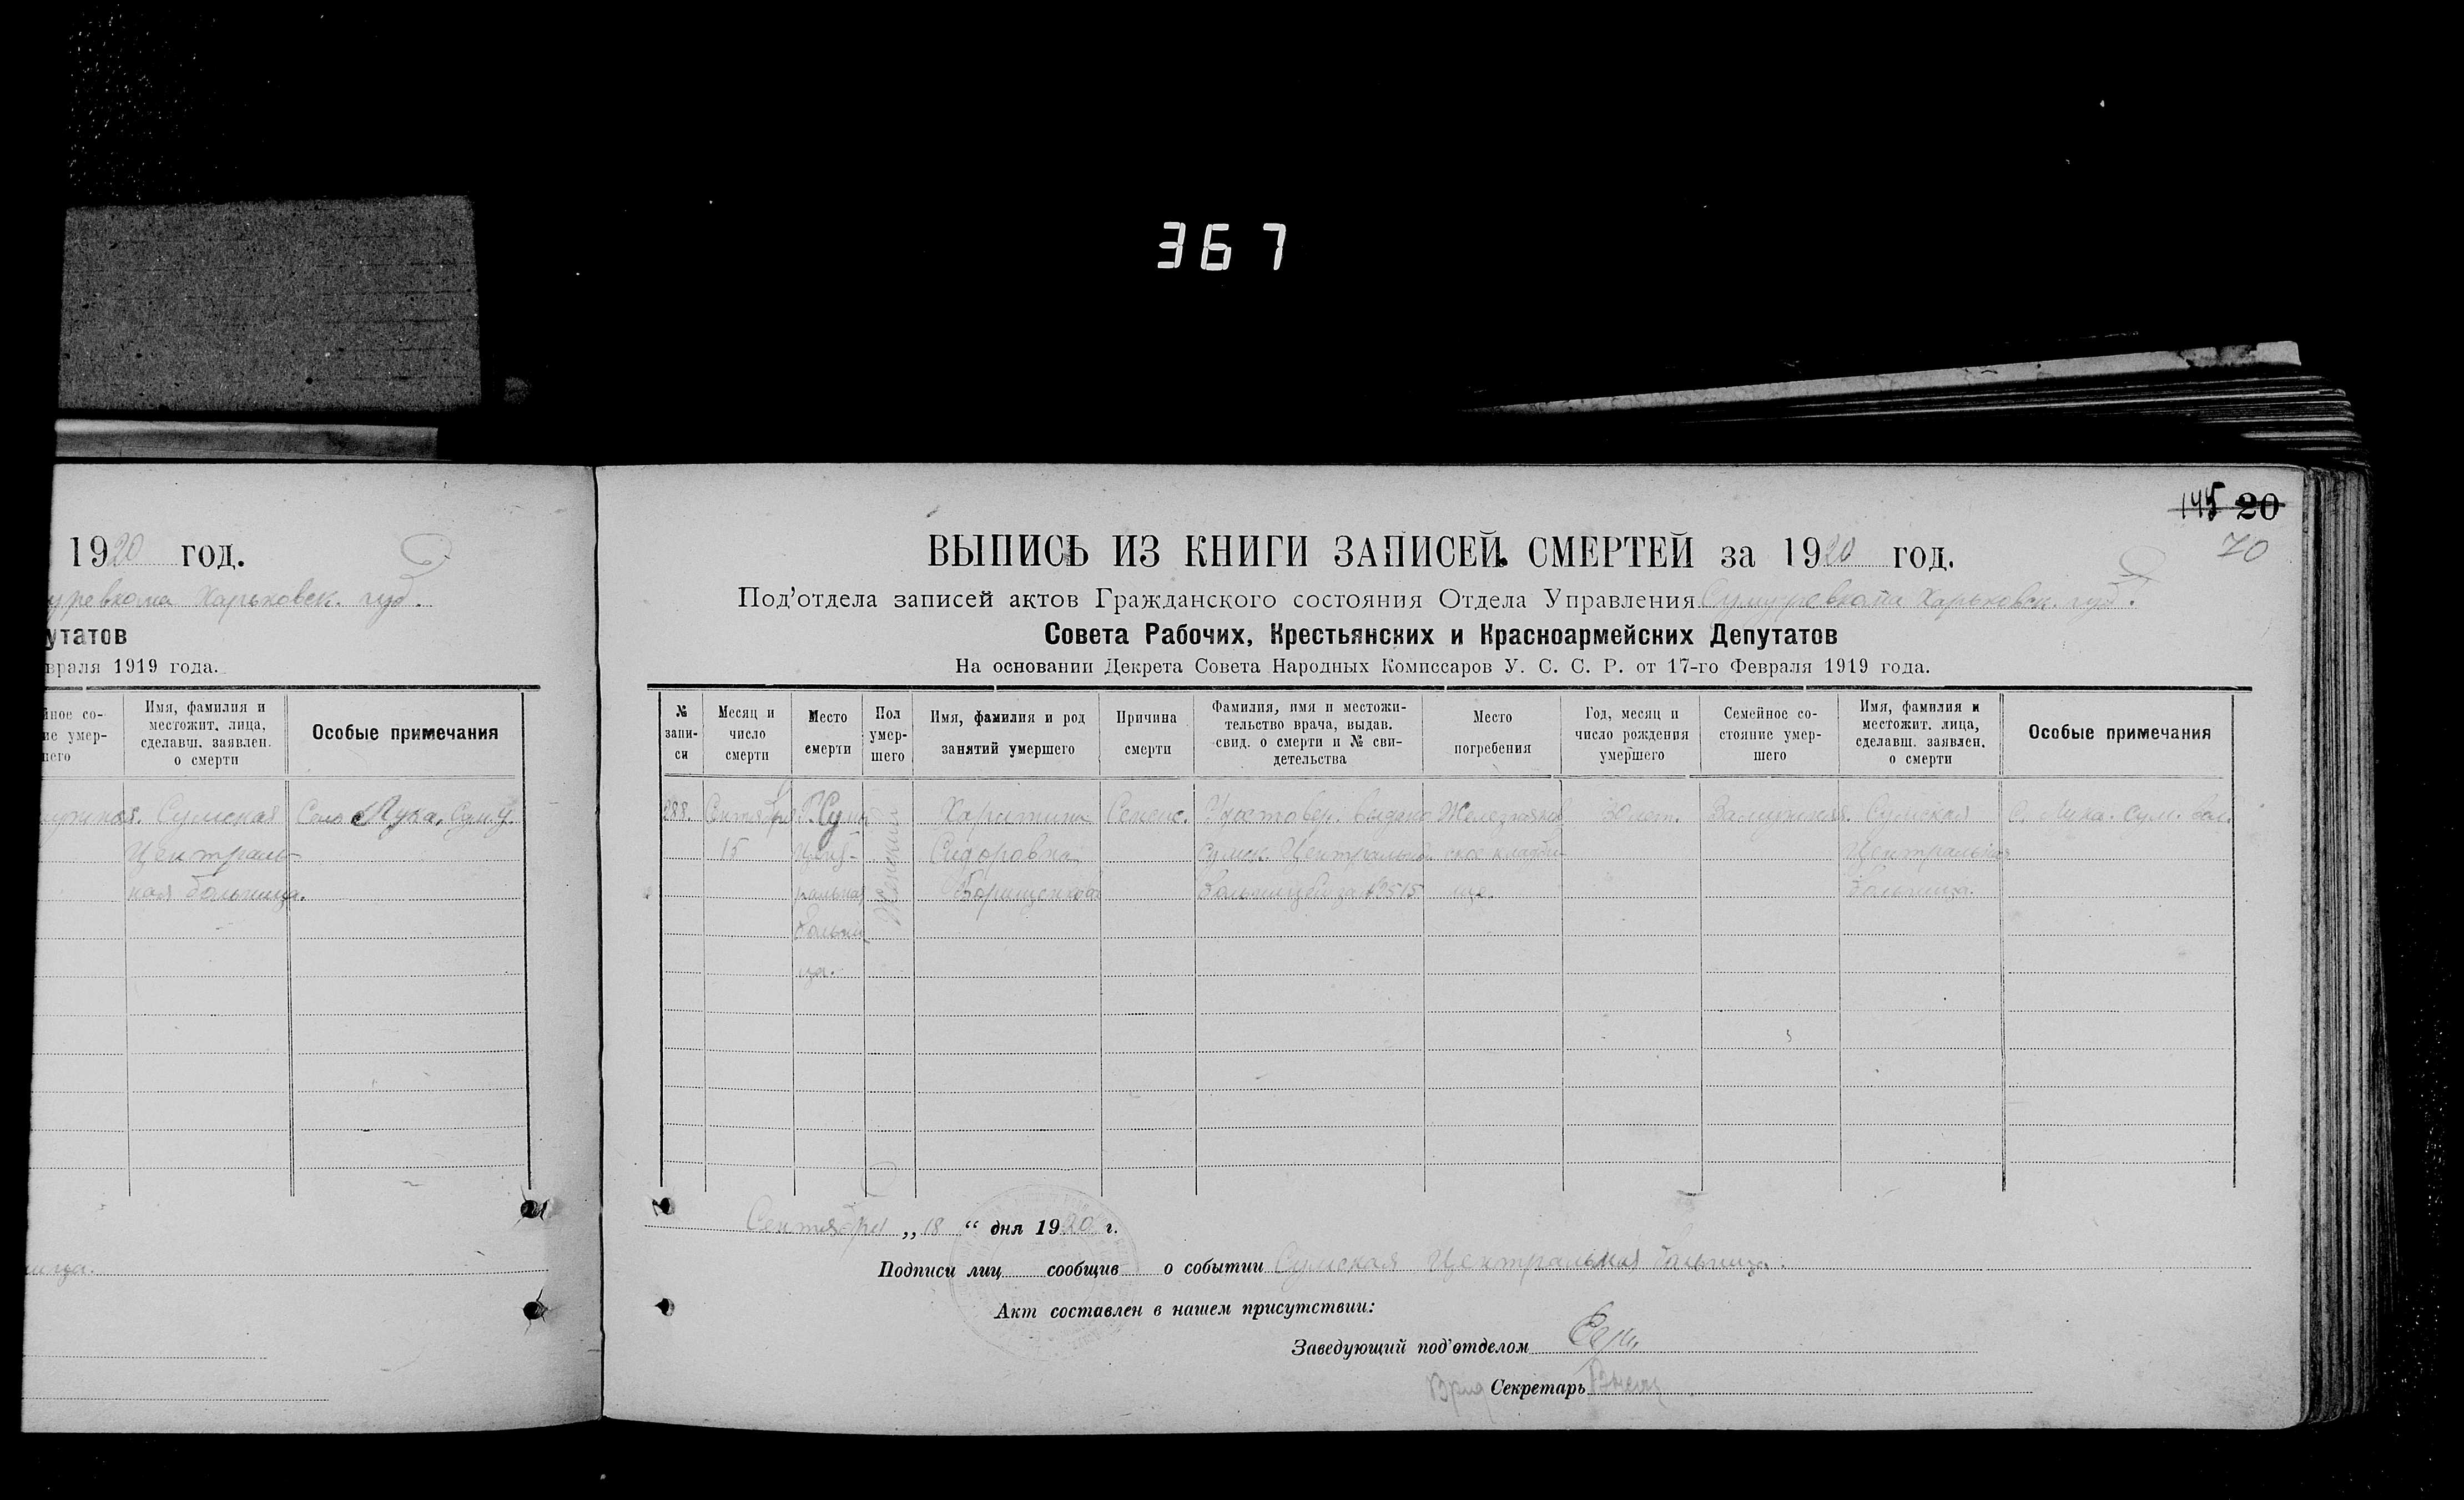 367
1920 год.
уревкома Харьковск. губ.
утатов
враля 1919 года.
йное со-
ие умер-
шего
Имя, фамилия и
местожит. лица,
сделавш. заявлен.
о смерти
Особые примечания
Сумская
Централь-
ная больница.
Село Лука, Сум. у.
ица.
145 20
70
ВЫПИСЬ ИЗ КНИГИ ЗАПИСЕЙ СМЕРТЕЙ за 1920 год.
Под'отдела записей актов Гражданского состояния Отдела Управления Сумуревкома Харьковск. губ.
Совета Рабочих, Крестьянских и Красноармейских Депутатов
На основании Декрета Совета Народных Комиссаров У. С. С. Р. от 17-го Февраля 1919 года.
№
запи-
си
Месяц и
число
смерти
Место
смерти
Пол
умер-
шего
Имя, фамилия и род
занятий умершего
Причина
смерти
Фамилия, имя и местожи-
тельство врача, выдав.
свид. о смерти и № сви-
детельства
Место
погребения
Год, месяц и
число рождения
умершего
Семейное со-
стояние умер-
шего
Имя, фамилия и
местожит. лица,
сделавш. заявлен.
о смерти
Особые примечания
288.
Сентября
15
Цент-
ральная
больни
ца.
Женский
Харитина
Сидоровна
Удостовер. выдано
Сумск. Центральной
больницей за №3515
Железняков
ское кладби-
ще.
30 лет.
Замужняя.
Сумская
Центральная
больница.
с. Лука. Сум. вол.
Сентября „18“ дня 1920 г.
Подписи лиц сообщив о событии Сумская Центральная больница.
Акт составлен в нашем присутствии:
Заведующий под'отделом
Врид Секретарь